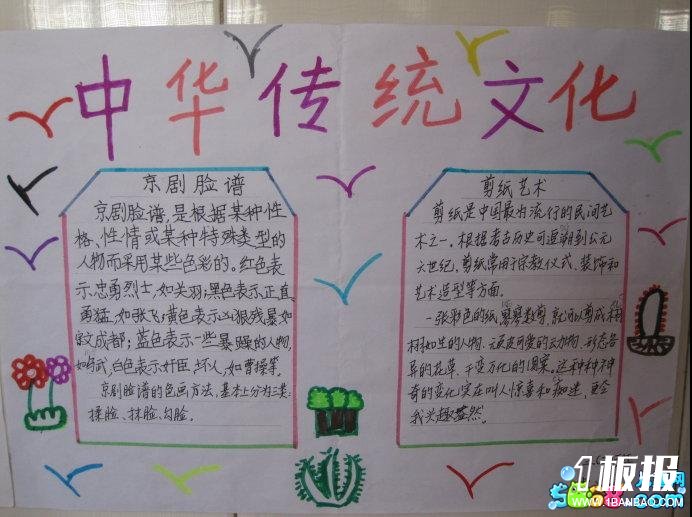 中华传统文化
京剧脸谱
京剧脸谱,是根据某种性
格、性情或某种特殊类型的
人物而采用某些色彩的。红色表
示忠勇烈士,如关羽;黑色表示正直
勇猛,如张飞;黄色表示凶狠残暴如
宇文成都;蓝色表示一些暴躁的人物,
如武,白色表示奸臣、坏人,如曹操等。
京剧脸谱的色画方法,基本上分为三类:
揉脸、抹脸、勾脸。
剪纸艺术
剪纸是中国最为流行的民间艺
术之一,根据考古历史可追朔到公元
六世纪。剪纸常用于宗教仪式、装饰和
艺术造型等方面。
一张彩色的纸,寥寥数剪,就可以剪成栩
栩如生的人物、可爱的动物、形态各
异的花草、千变万化的图案。这种种神
奇的变化实在叫人惊喜和痴迷,更令
我兴趣盎然。
1板报
WWW.1BANBAO.COM